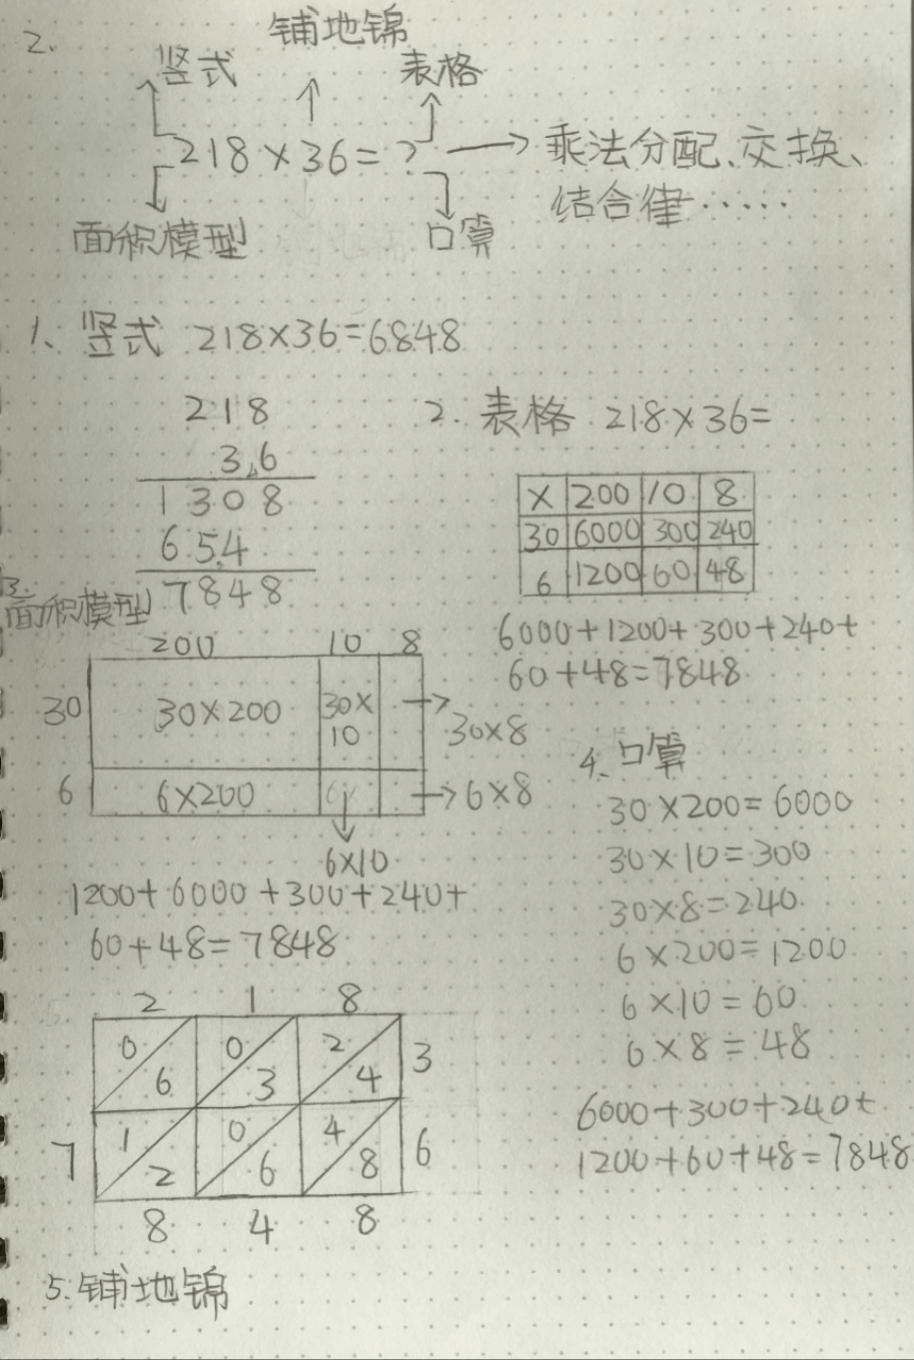 2.
铺地锦
竖式 表格
218×36=? → 乘法分配、交换、
结合律······
面积模型 口算
1、竖式 218×36=6848
218
36
1308
654
7848
2. 表格 218×36=
× 200 10 8
30 6000 300 240
6 1200 60 48
6000+1200+300+240+
60+48=7848
3.
面积模型
200 10 8
30 30×200 30×
10 → 30×8
6 6×200 → 6×8
6×10
1200+6000+300+240+
60+48=7848
4、口算
30×200=6000
30×10=300
30×8=240
6×200=1200
6×10=60
6×8=48
6000+300+240+
1200+60+48=7848
2 1 8
0 0 2 3
6 3 4
1 0 4 6
7 2 6 8
8 4 8
5.铺地锦